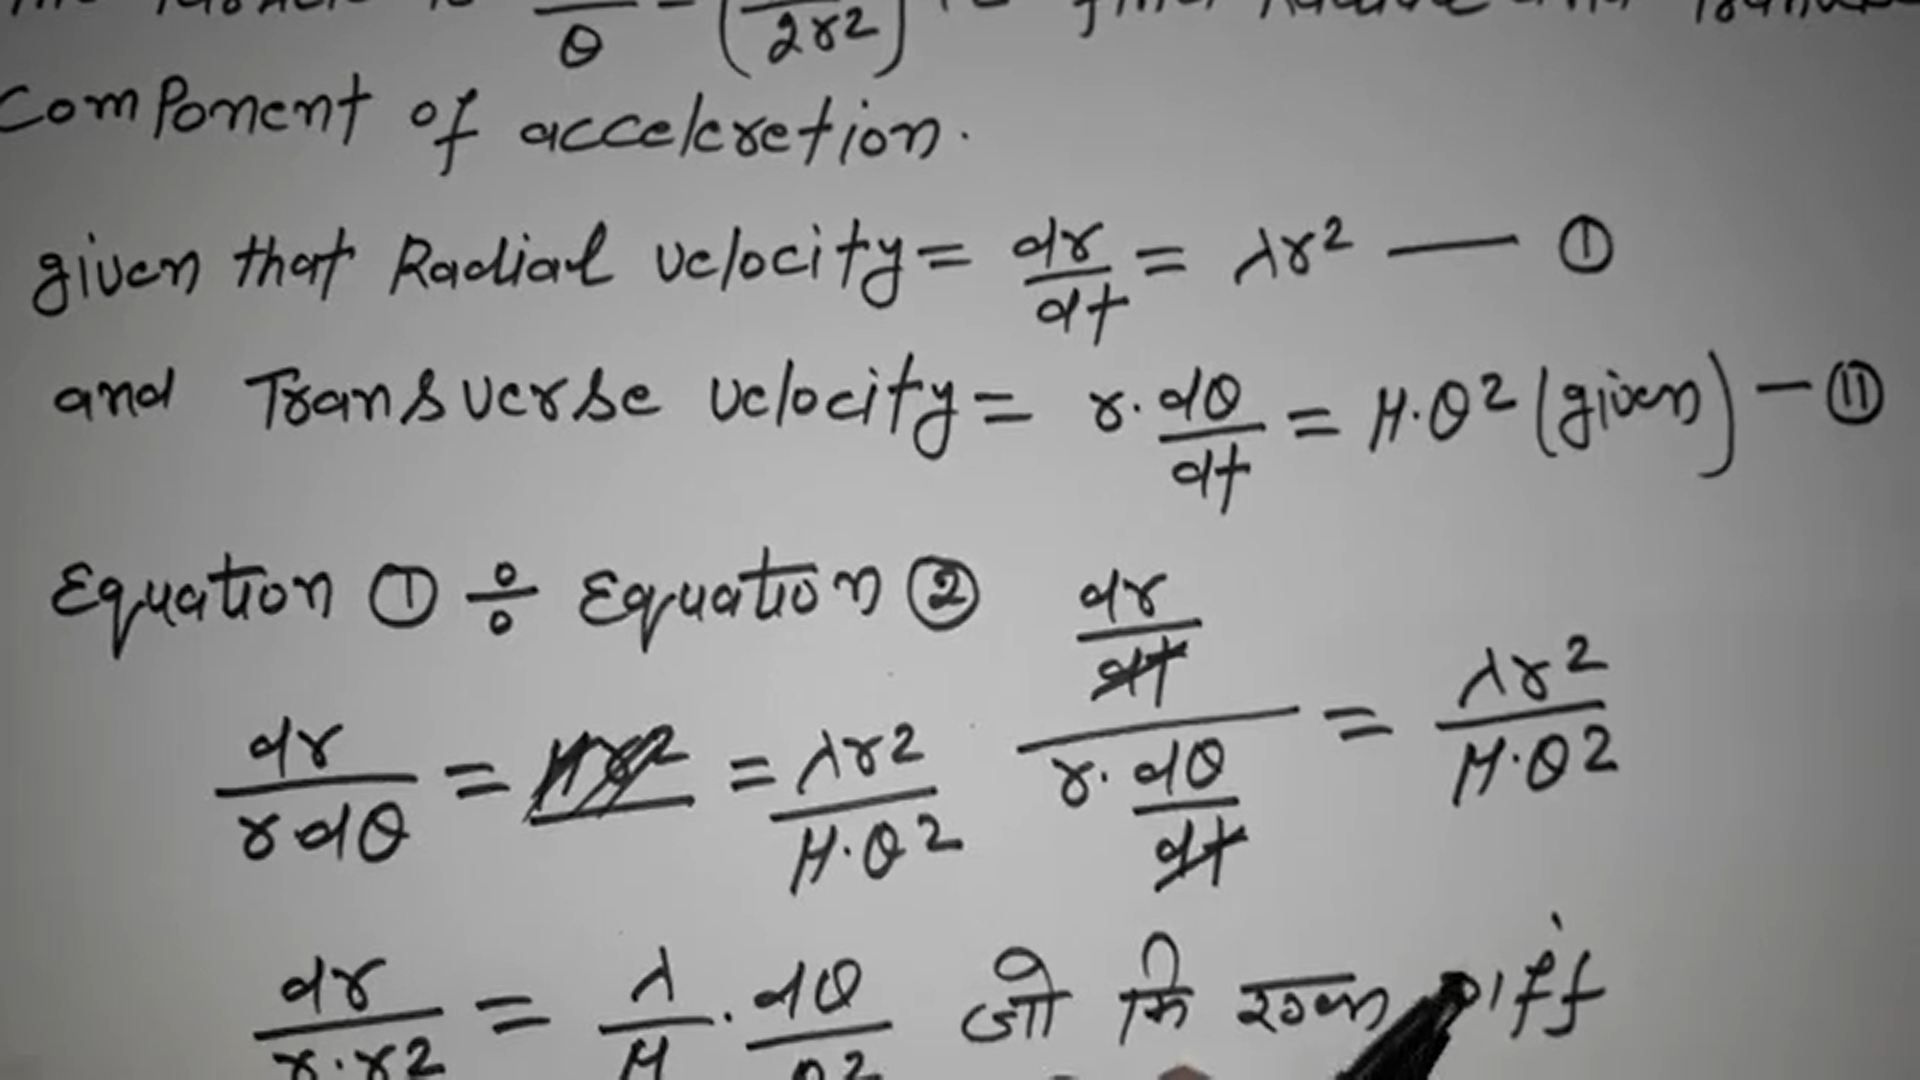 θ (2r2)
component of acceleretion.
given that Radial velocity = dr/dt = λr2 — ①
and Transverse velocity = r.dθ/dt = μ.θ2 (given) — ⑪
Equation ① ÷ Equation ②
dr/dt / r.dθ/dt = λr2/μ.θ2
dr/rdθ = = λr2/μ.θ2
dr/r.r2 = λ/μ . dθ/θ2 जो कि Diff